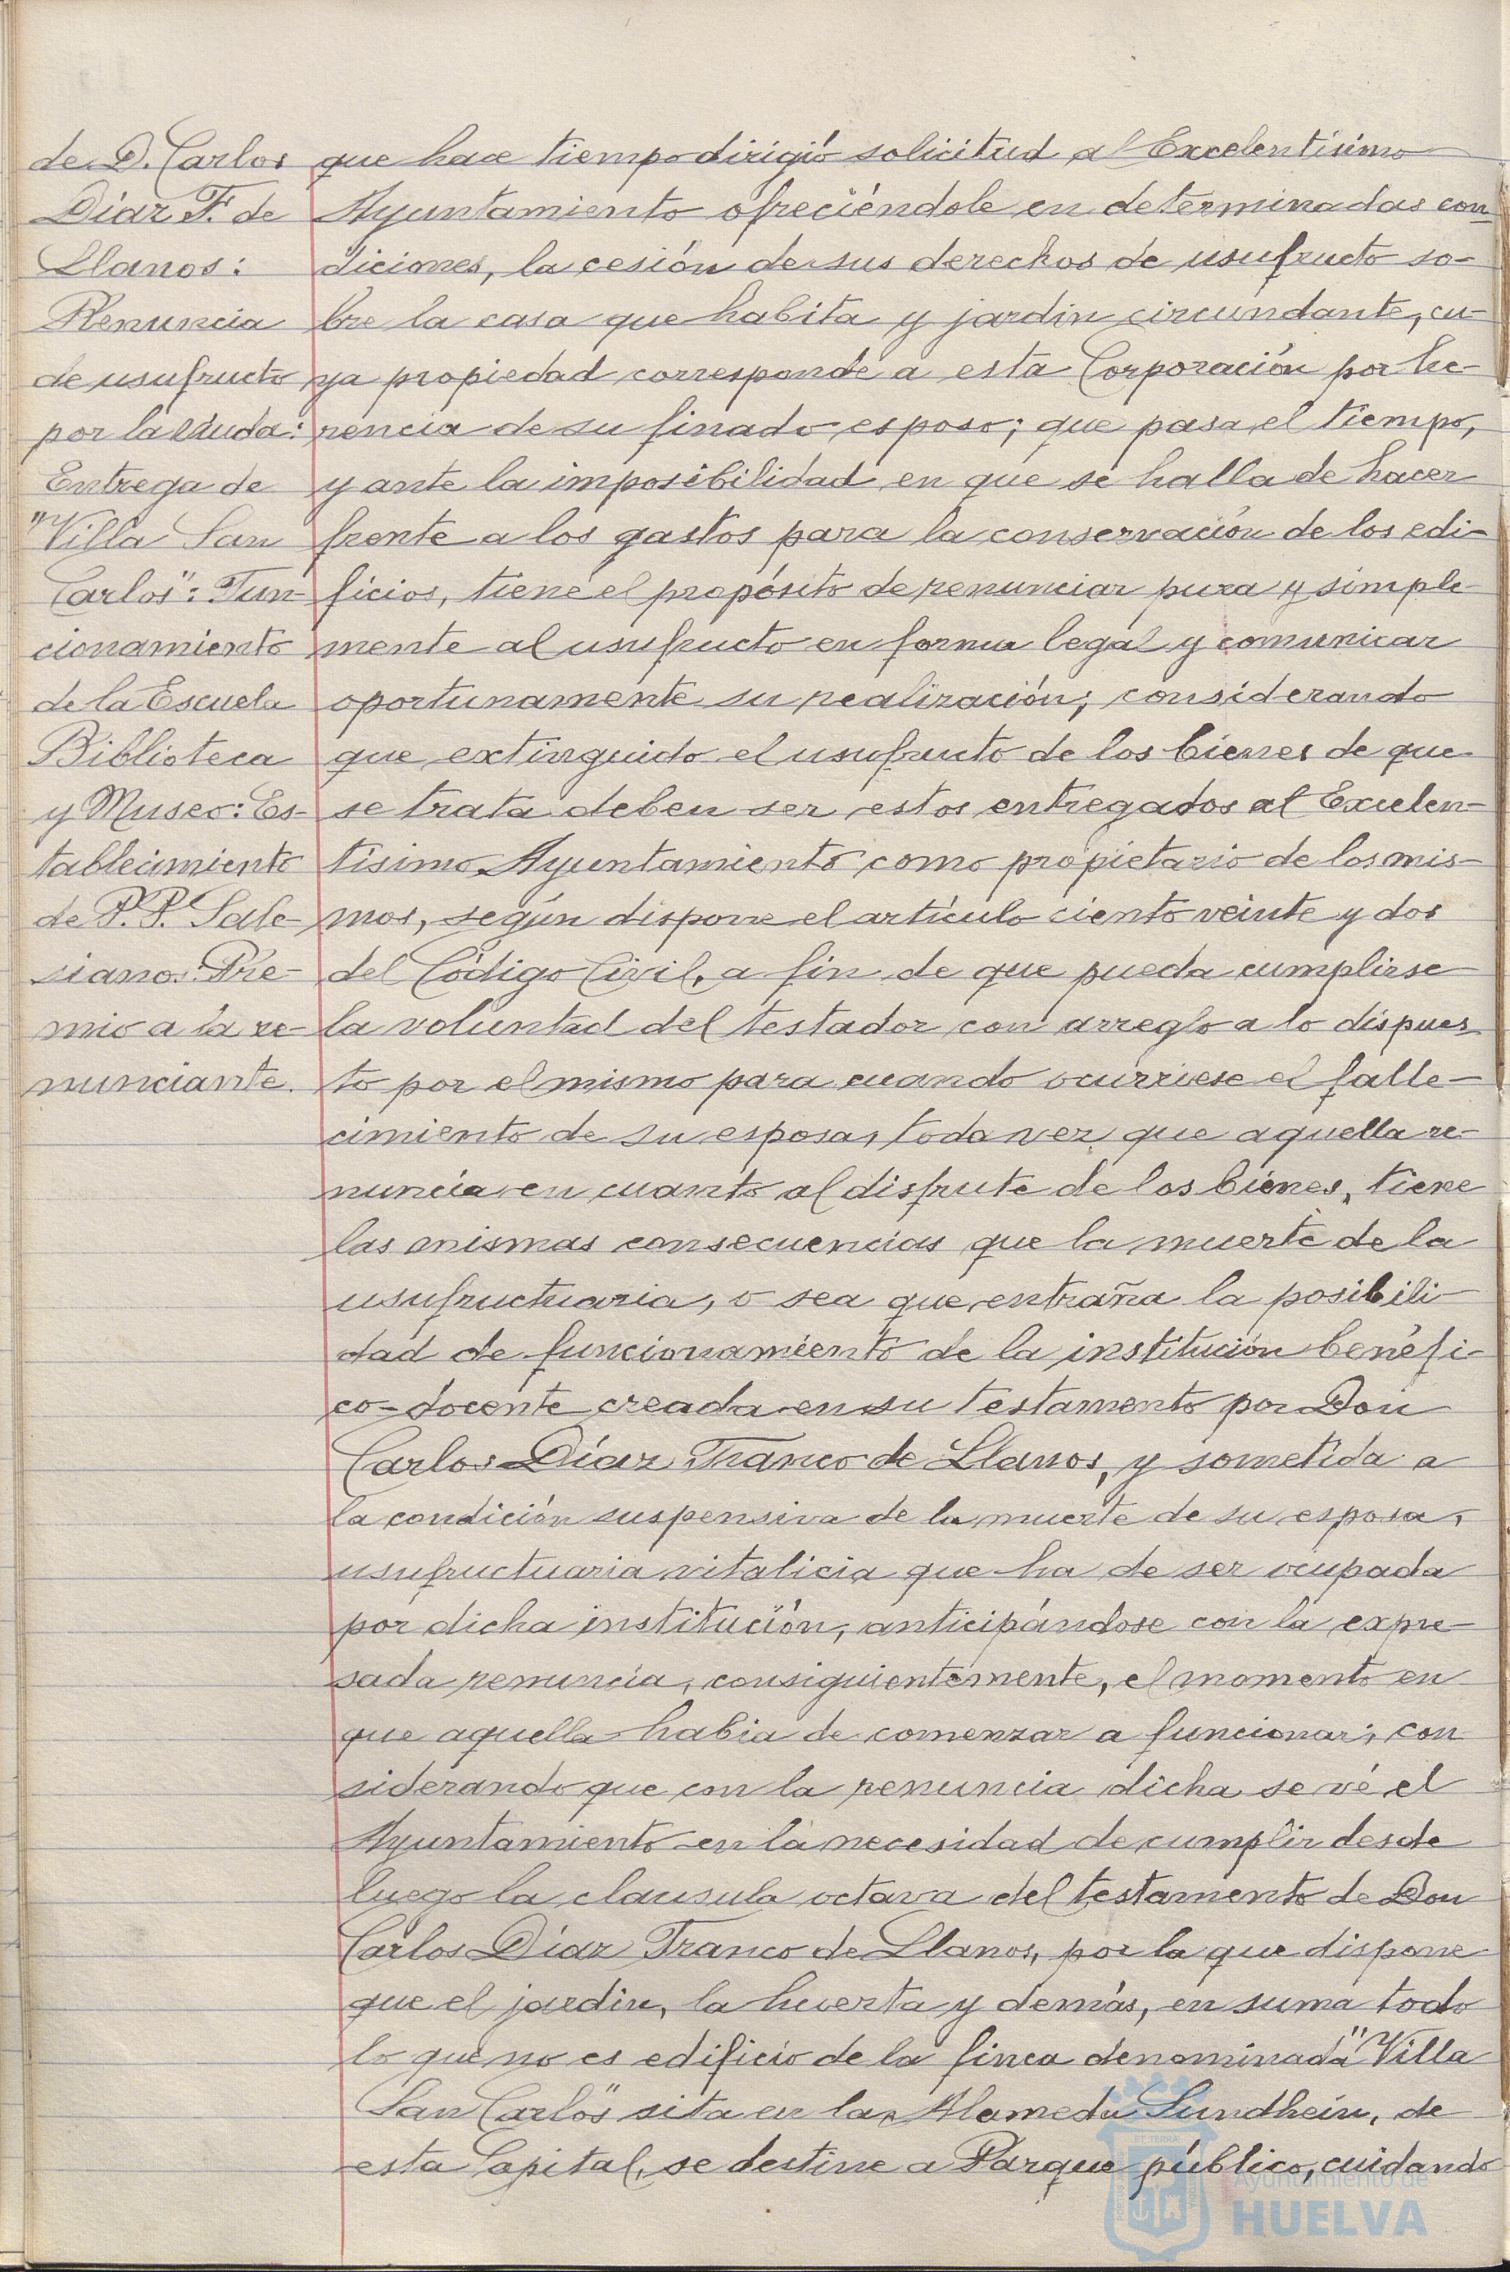 de D. Carlos
Díaz F. de
Llanos:
Renuncia
de usufructo
por la viuda:
Entrega de
"Villa San
Carlos": Fun-
cionamiento
de la Escuela
Biblioteca
y Museo: Es-
tablecimiento
de P.P. Sale-
sianos: Pre-
mio a la re-
nunciante.
que hace tiempo dirigió solicitud al Excelentísimo
Ayuntamiento ofreciéndole en determinadas con-
diciones, la cesión de sus derechos de usufructo so-
bre la casa que habita y jardin circundante, cu-
ya propiedad corresponde a esta Corporación por he-
rencia de su finado esposo; que pasa el tiempo,
y ante la imposibilidad en que se halla de hacer
frente a los gastos para la conservación de los edi-
ficios, tiene el propósito de renunciar pura y simple-
mente al usufructo en forma legal y comunicar
oportunamente su realización; considerando
que extinguido el usufructo de los bienes de que
se trata deben ser estos entregados al Excelen-
tísimo Ayuntamiento como propietario de los mis-
mos, según dispone el artículo ciento veinte y dos
del Código Civil, a fin de que pueda cumplirse
la voluntad del testador con arreglo a lo dispues
to por el mismo para cuando ocurriese el falle-
cimiento de su esposa, toda vez que aquella re-
nuncia en cuanto al disfrute de los bienes, tiene
las mismas consecuencias que la muerte de la
usufructuaria, o sea que entraña la posibili-
dad de funcionamiento de la institución benéfi-
co-docente creada en su testamento por Don
Carlos Díaz Franco de Llanos, y sometida a
la condición suspensiva de la muerte de su esposa,
usufructuaria vitalicia que ha de ser ocupada
por dicha institución, anticipándose con la expre-
sada renuncia, consiguientemente, el momento en
que aquella habia de comenzar a funcionar; con
siderando que con la renuncia dicha se vé el
Ayuntamiento en la necesidad de cumplir desde
luego la clausula octava del testamento de Don
Carlos Díaz Franco de Llanos, por la que dispone
que el jardin, la huerta y demás, en suma todo
lo que no es edificio de la finca denominada "Villa
San Carlos" sita en la Alameda Sundhein, de
esta Capital, se destine a Parque público, cuidando
Ayuntamiento de
HUELVA